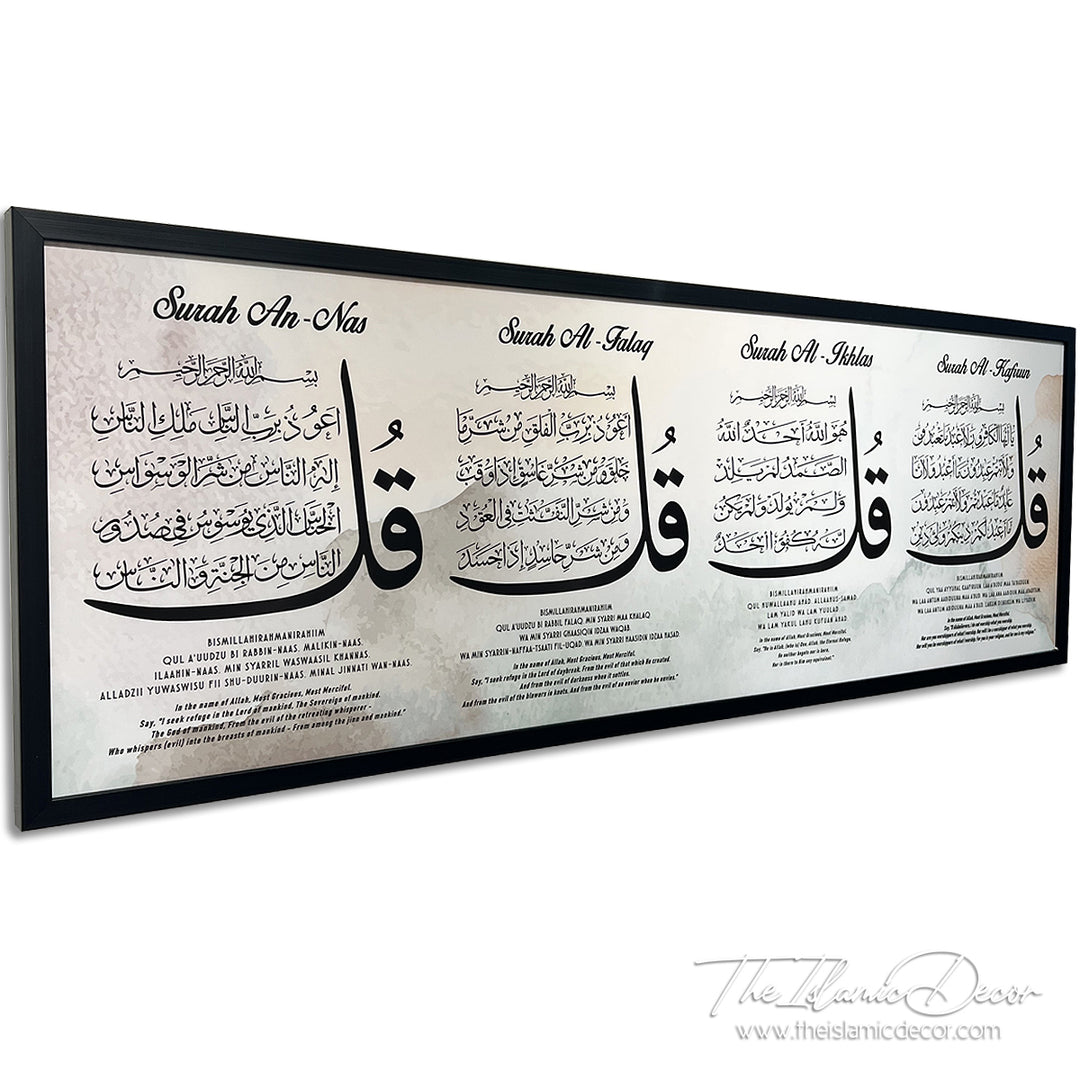 Surah An-Nas
بسم الله الرحمن الرحيم
قل
اعوذ برب الناس ملك الناس
إله الناس من شر الوسواس
الخناس الذي يوسوس في صدور
الناس من الجنة والناس
BISMILLAHIRAHMANIRAHIIM
QUL A'UUDZU BI RABBIN-NAAS. MALIKIN-NAAS.
ILAAHIN-NAAS. MIN SYARRIL WASWAASIL KHANNAS.
ALLADZII YUWASWISU FII SHU-DUURIN-NAAS. MINAL JINNATI WAN-NAAS.
In the name of Allah, Most Gracious, Most Merciful.
Say, "I seek refuge in the Lord of mankind, The Sovereign of mankind.
The God of mankind, From the evil of the retreating whisperer -
Who whispers (evil) into the breasts of mankind - From among the jinn and mankind."
Surah Al-Falaq
بسم الله الرحمن الرحيم
قل
أعوذ برب الفلق من شر ما
خلق ومن شر غاسق إذا وقب
ومن شر النفثت في العقد
ومن شر حاسد إذا حسد
BISMILLAHIRAHMANIRAHIIM
QUL A'UUDZU BI RABBIL FALAQ. MIN SYARRI MAA KHALAQ
WA MIN SYARRI GHAASIQIN IDZAA WAQAB.
WA MIN SYARRIN-NAFFAA-TSAATI FIL-UQAD. WA MIN SYARRI HAASIDIN IDZAA HASAD.
In the name of Allah, Most Gracious, Most Merciful.
Say, "I seek refuge in the Lord of daybreak. From the evil of that which He created.
And from the evil of darkness when it settles.
And from the evil of the blowers in knots. And from the evil of an envier when he envies."
Surah Al-Ikhlas
بسم الله الرحمن الرحيم
قل
هو الله أحد الله
الصمد لم يلد
ولم يولد ولم يكن
له كفوا احد
BISMILLAHIRAHMANIRAHIIM
QUL HUWALLAHU AHAD. ALLAAHUS-SAMAD.
LAM YALID WA LAM YUULAD
WA LAM YAKUL LAHU KUFUAN AHAD.
In the name of Allah, Most Gracious, Most Merciful.
Say, "He is Allah, [who is] One, Allah, the Eternal Refuge.
He neither begets nor is born,
Nor is there to Him any equivalent."
Surah Al-Kafirun
بسم الله الرحمن الرحيم
قل
يا أيها الكافرون لا أعبد ما تعبدون
ولا أنتم عبدون ما أعبد ولا أنا
عابد ما عبدتم ولا أنتم عبدون
ما أعبد لكم دينكم ولي دين
BISMILLAHIRAHMANIRAHIIM
In the name of Allah, Most Gracious, Most Merciful.
The Islamic Decor
www.theislamicdecor.com